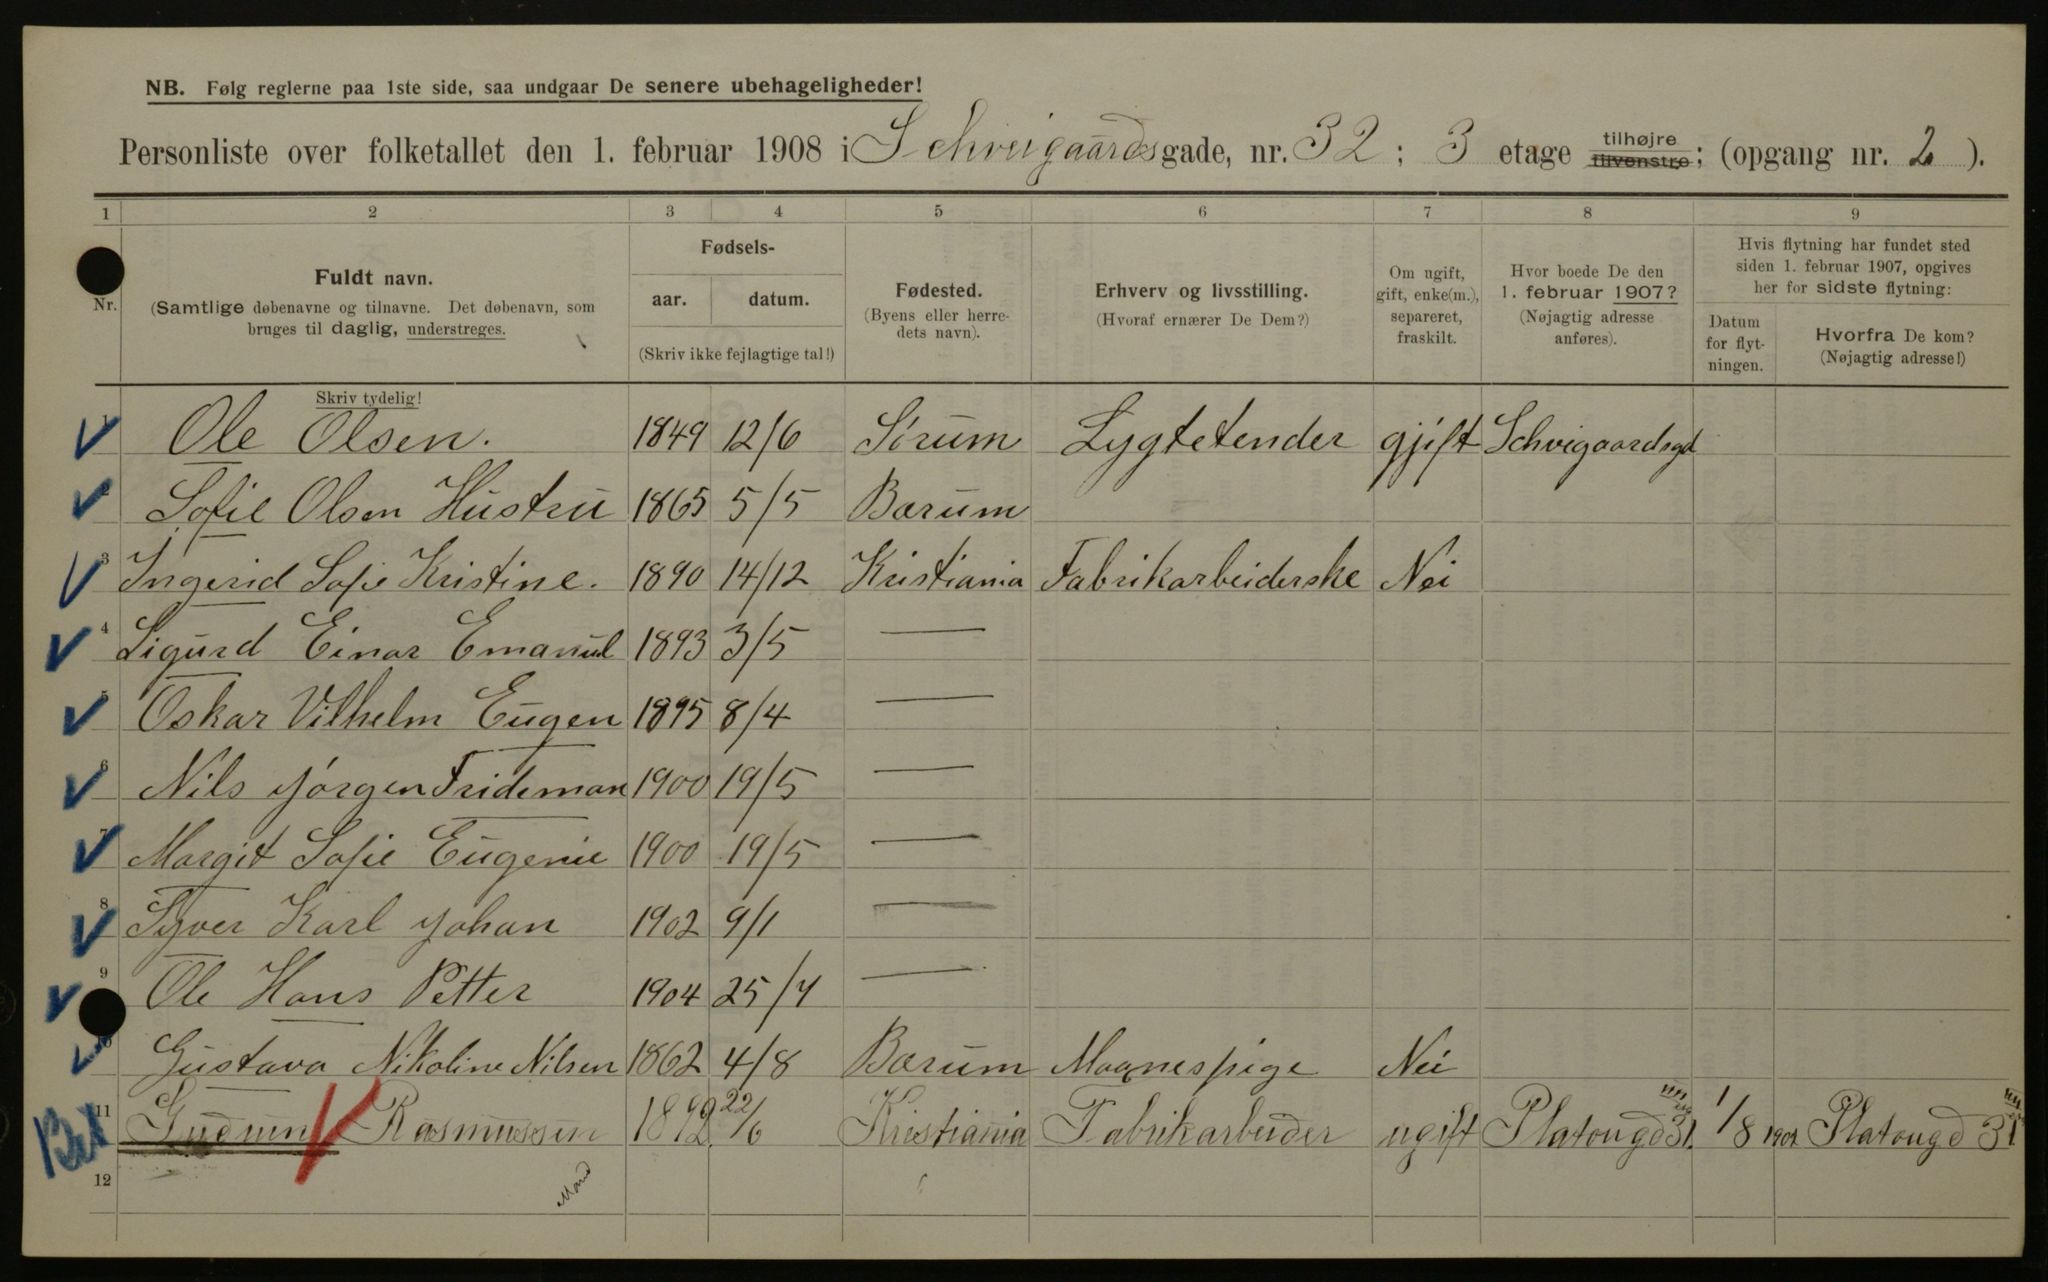 NB. Følg reglerne paa 1ste side, saa undgaar De senere ubehageligheder!
Personliste over folketallet den 1. februar 1908 i Schveigaardsgade, nr. 32; 3 etage tilhøjre tilvenstre; (opgang nr. 2).
1 2 3 4 5 6 7 8 9
Nr. Fuldt navn. (Samtlige døbenavne og tilnavne. Det døbenavn, som bruges til daglig, understreges.
Fødsels- aar. datum. (Skriv ikke fejlagtige tal!)
Fødested. (Byens eller herredets navn).
Erhverv og livsstilling. (Hvoraf ernærer De Dem?)
Om ugift, gift, enke(m.), separeret, fraskilt.
Hvor boede De den 1. februar 1907? (Nøjagtig adresse anføres).
Hvis flytning har fundet sted siden 1. februar 1907, opgives her for sidste flytning:
Datum for flytningen. Hvorfra De kom? (Nøjagtig adresse!)
Skriv tydelig!
1 Ole Olsen. 1849 12/6 Sørum Lygtetender gjift Schvigaardsgd
2 Sofie Olsen Hustru 1865 5/5 Bærum
3 Ingerid Sofie Kristine. 1890 14/12 Kristiania Fabrikarbeiderske Nei
4 Sigurd Einar Emanuel 1893 3/5 —
5 Oskar Vilhelm Eugen 1895 8/4 —
6 Nils Jørgen Frideman 1900 19/5 —
7 Margit Sofie Eugenie 1900 19/5 —
8 Syver Karl Johan 1902 9/1 —
9 Ole Hans Petter 1904 25/4 —
10 Gustava Nikoline Nilsen 1862 4/8 Bærum Maanespige Nei
11 Gudrun Rasmussen 1892 22/6 Kristiania Fabrikarbeider ugift Platougd 31 1/8 1907 Platougd 31
12